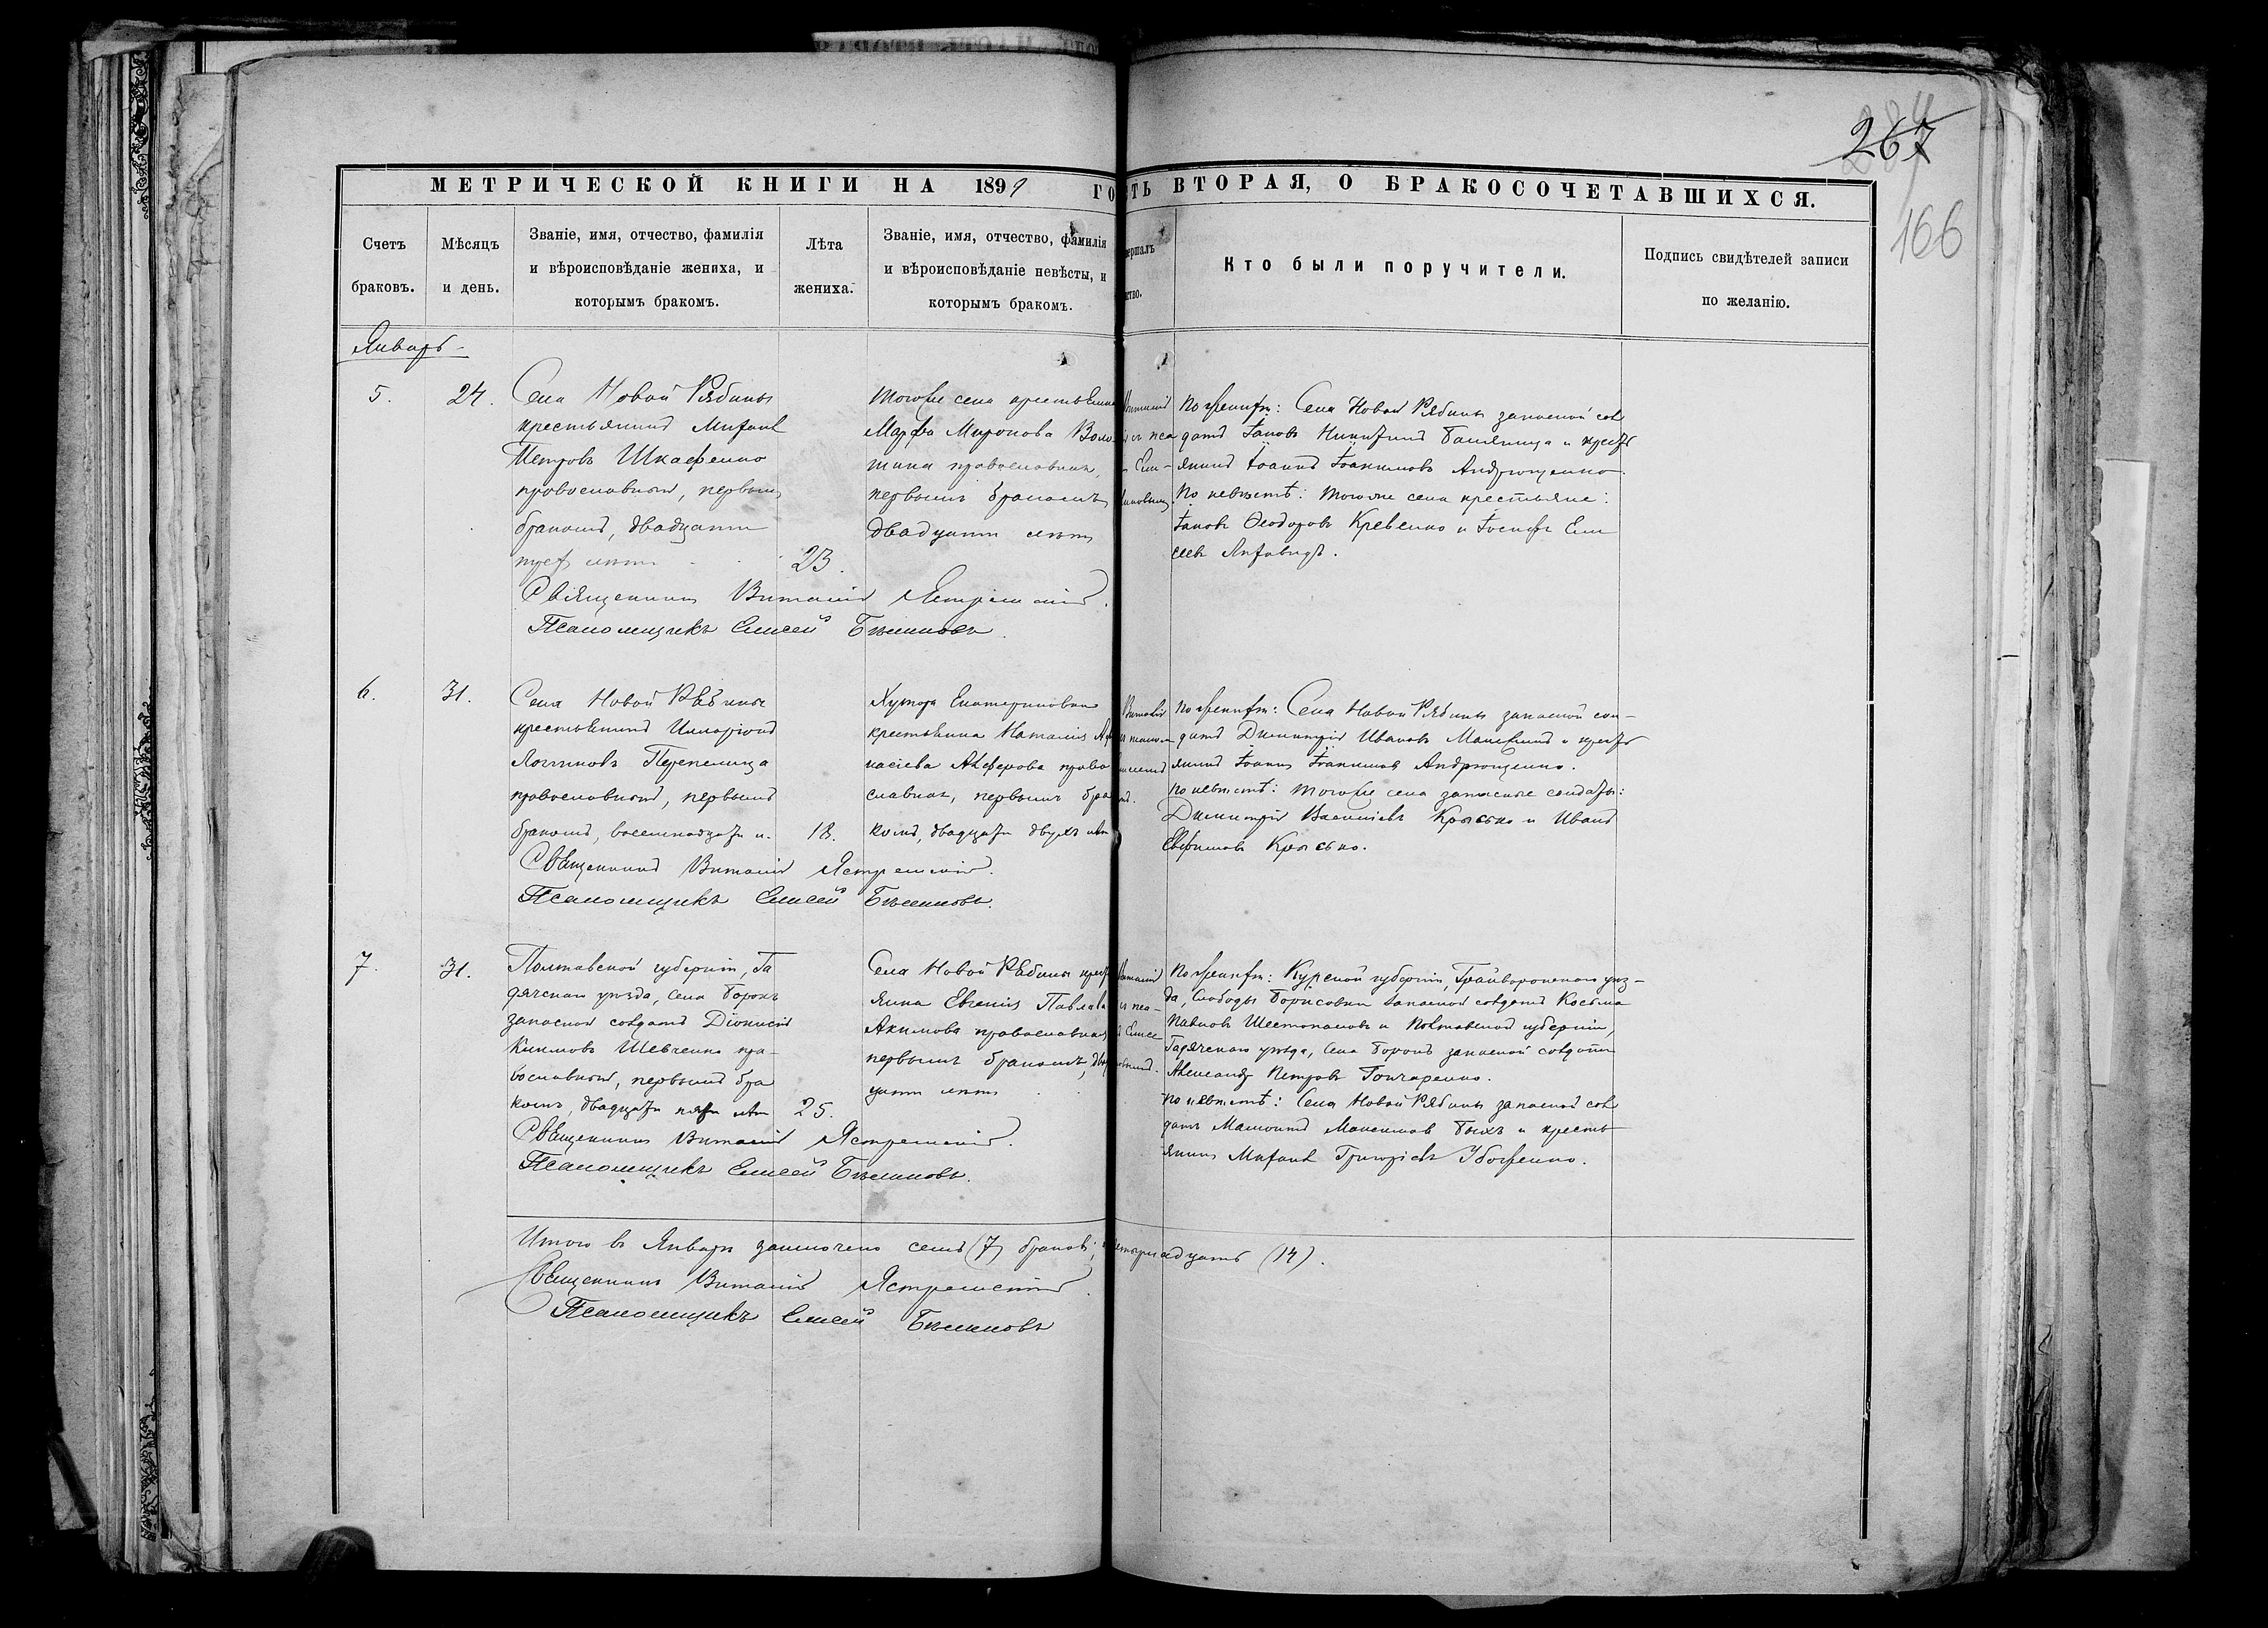 267
166
МЕТРИЧЕСКОЙ КНИГИ НА 1899 ГО
СТЬ ВТОРАЯ, О БРАКОСОЧЕТАВШИХСЯ.
Счетъ
браковъ.
Мѣсяцъ
и день.
Званіе, имя, отчество, фамилія
и вѣроисповѣданіе жениха, и
которымъ бракомъ.
Лѣта
жениха.
Званіе, имя, отчество, фамилія
и вѣроисповѣданіе невѣсты, и
которымъ бракомъ.
Кто были поручители.
Подпись свидѣтелей записи
по желанію.
Январь
5.
24.
Села Новой Рябины
крестьянинъ Михаилъ
Петровъ Шкафенко
православный, первымъ
бракомъ, двадцати
трехъ лѣтъ
23.
Тогоже села крестьянка
Марфа Миронова
православная,
первымъ бракомъ
двадцати лѣтъ
По женихѣ: Села Новой Рябины запасной сол
датъ Іаковъ Никитинъ и кресть
янинъ Іоаннъ Іоакимовъ Андрющенко
По невѣстѣ: тогоже села крестьяне:
Іаковъ Ѳеодоровъ Кревенко и Іосифъ Ели
сеевъ
Священникъ Виталій Ястремскій.
Псаломщикъ Елисей Бѣликовъ.
6.
31.
Села Новой Рябины
крестьянинъ Илларіонъ
Логгиновъ Перепелица
православный, первымъ
бракомъ, восемнадцати л.
18.
Хутора Екатериновки
крестьянка Наталія Афа
насіева Алферова право
славная, первымъ бра
комъ, двадцати двухъ лѣтъ
По женихѣ: Села Новой Рябины запасной сол-
датъ Димитрій Ивановъ и кресть
янинъ Іоаннъ Іоакимовъ Андрющенко.
По невѣстѣ: тогоже села запасные солдаты:
Димитрій Василіевъ Крысько и Иванъ
Евфимовъ Крысько.
Священникъ Виталій Ястремскій.
Псаломщикъ Елисей Бѣликовъ.
7.
31.
Полтавской губерніи, Га
дячскаго уѣзда, села
запасной солдатъ Діонисій
Климовъ Шевченко пра-
вославный, первымъ бра
комъ, двадцати пяти лѣтъ
25.
Села Новой Рябины кресть
янка Евгенія Павлова
Акимова православная
первымъ бракомъ, двад
цати лѣтъ
По женихѣ: Курской губерніи, Грайворонскаго уѣз-
да, Слободы Борисовки запасной солдатъ Косьма
Павловъ Шестопаловъ и Полтавской губерніи,
Гадячскаго уѣзда, села запасной солдатъ
Александръ Петровъ Гончаренко.
По невѣстѣ: Села Новой Рябины запасной сол
датъ Максимовъ Быкъ и кресть
янинъ Михаилъ Григоріевъ Убоженко.
Священникъ Виталій Ястремскій.
Псаломщикъ Елисей Бѣликовъ.
Итого въ Январѣ заключено семь (7) браковъ; четырнадцать (14).
Священникъ Виталій Ястремскій.
Псаломщикъ Елисей Бѣликовъ